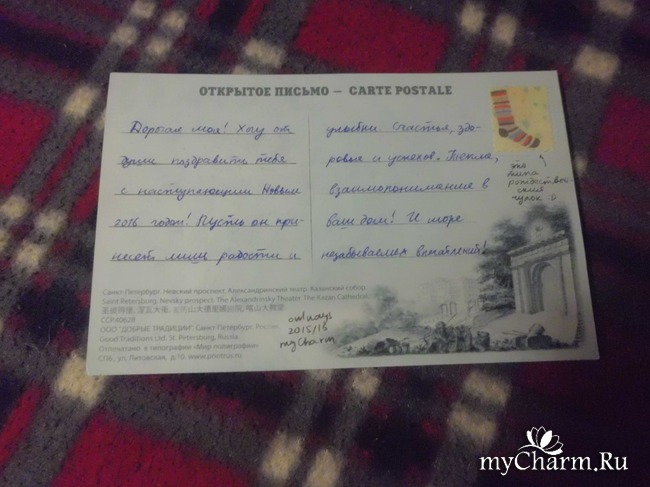 ОТКРЫТОЕ ПИСЬМО – CARTE POSTALE
Дорогая моя! Хочу от
души поздравить тебя
с наступающим Новым
2016 годом! Пусть он при-
несёт массу радости и
улыбки. Счастья, здо-
ровья и успехов. Тепла,
взаимопонимания в
ваш дом! И море
незабываемых впечатлений!
это
типа
рождествен-
ский
чулок :D
Санкт-Петербург. Невский проспект. Александринский театр. Казанский собор.
Saint Petersburg. Nevsky prospect. The Alexandrinsky Theater. The Kazan Cathedral.
ССР.40628
ООО "ДОБРЫЕ ТРАДИЦИИ". Санкт-Петербург. Россия
Good Traditions Ltd. St. Petersburg, Russia
Отпечатано в типографии «Мир полиграфии»
СПб., ул. Литовская, д.10. www.printrus.ru
owlways
2015/16
myCharm
myCharm.Ru